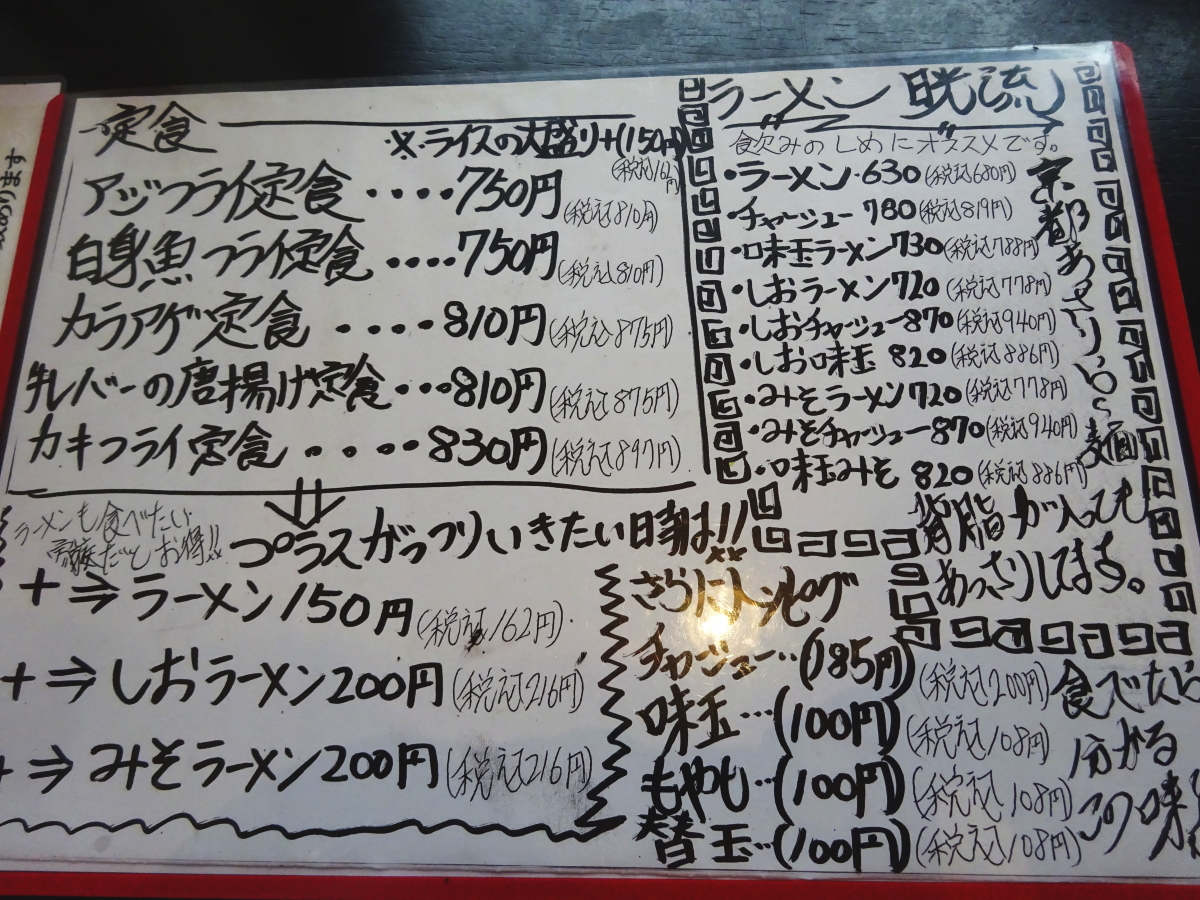 定食
※ライスの大盛り+(150円)
(税込162円)
アジフライ定食‥‥750円(税込810円)
白身魚フライ定食‥‥750円(税込810円)
カラアゲ定食‥‥810円(税込875円)
牛レバーの唐揚げ定食‥・810円(税込875円)
カキフライ定食‥‥830円(税込897円)
ラーメンも食べたい
プラスガっつりいきたい時は!!
+⇒ラーメン150円(税込162円)
+⇒しおラーメン200円(税込216円)
+⇒みそラーメン200円(税込216円)
ラーメン 晄流
飲みのしめにオススメです。
・ラーメン・630(税込680円)
・チャーシュー 780(税込819円)
・味玉ラーメン730(税込788円)
・しおラーメン720(税込778円)
・しおチャーシュー870(税込940円)
・しお味玉 820(税込886円)
・みそラーメン720(税込778円)
・みそチャーシュー870(税込940円)
・味玉みそ 820(税込886円)
京都あっさり
麺
背脂が入っても
あっさりしてます。
さらにトッピング
チャーシュー‥(185円)(税込200円)
味玉‥・(100円)(税込108円)
もやし‥(100円)(税込108円)
替玉‥(100円)(税込108円)
食べたら
分かる
この味